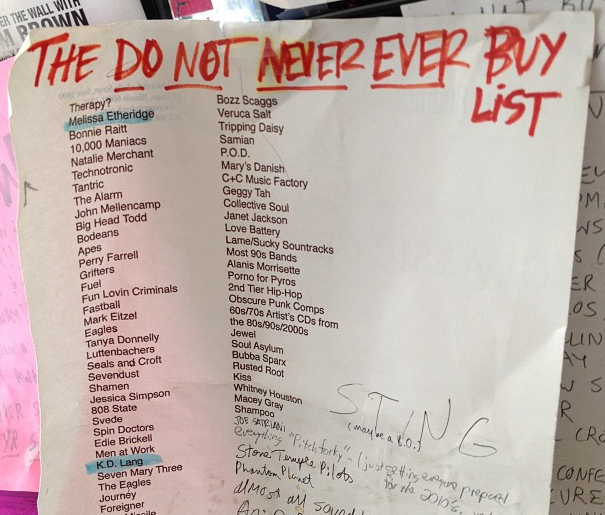 ER THE WALL WITH
M BROWN
THE DO NOT NEVER EVER BUY
LIST
Therapy?
Melissa Etheridge
Bonnie Raitt
10,000 Maniacs
Natalie Merchant
Technotronic
Tantric
The Alarm
John Mellencamp
Big Head Todd
Bodeans
Apes
Perry Farrell
Grifters
Fuel
Fun Lovin Criminals
Fastball
Mark Eitzel
Eagles
Tanya Donnelly
Luttenbachers
Seals and Croft
Sevendust
Shamen
Jessica Simpson
808 State
Svede
Spin Doctors
Edie Brickell
Men at Work
K.D. Lang
Seven Mary Three
The Eagles
Journey
Foreigner
Bozz Scaggs
Veruca Salt
Tripping Daisy
Samian
P.O.D.
Mary's Danish
C+C Music Factory
Geggy Tah
Collective Soul
Janet Jackson
Love Battery
Lame/Sucky Sountracks
Most 90s Bands
Alanis Morrisette
Porno for Pyros
2nd Tier Hip-Hop
Obscure Punk Comps
60s/70s Artist's CDs from
the 80s/90s/2000s
Jewel
Soul Asylum
Bubba Sparx
Rusted Root
Kiss
Whitney Houston
Macey Gray
Shampoo
STING
(maybe a B.O.)
JOE SATRIANI
everything "Pitchforky" - I just getting everyone prepared
for the 2010's
Stone Temple Pilots
Phantom Planet
almost all